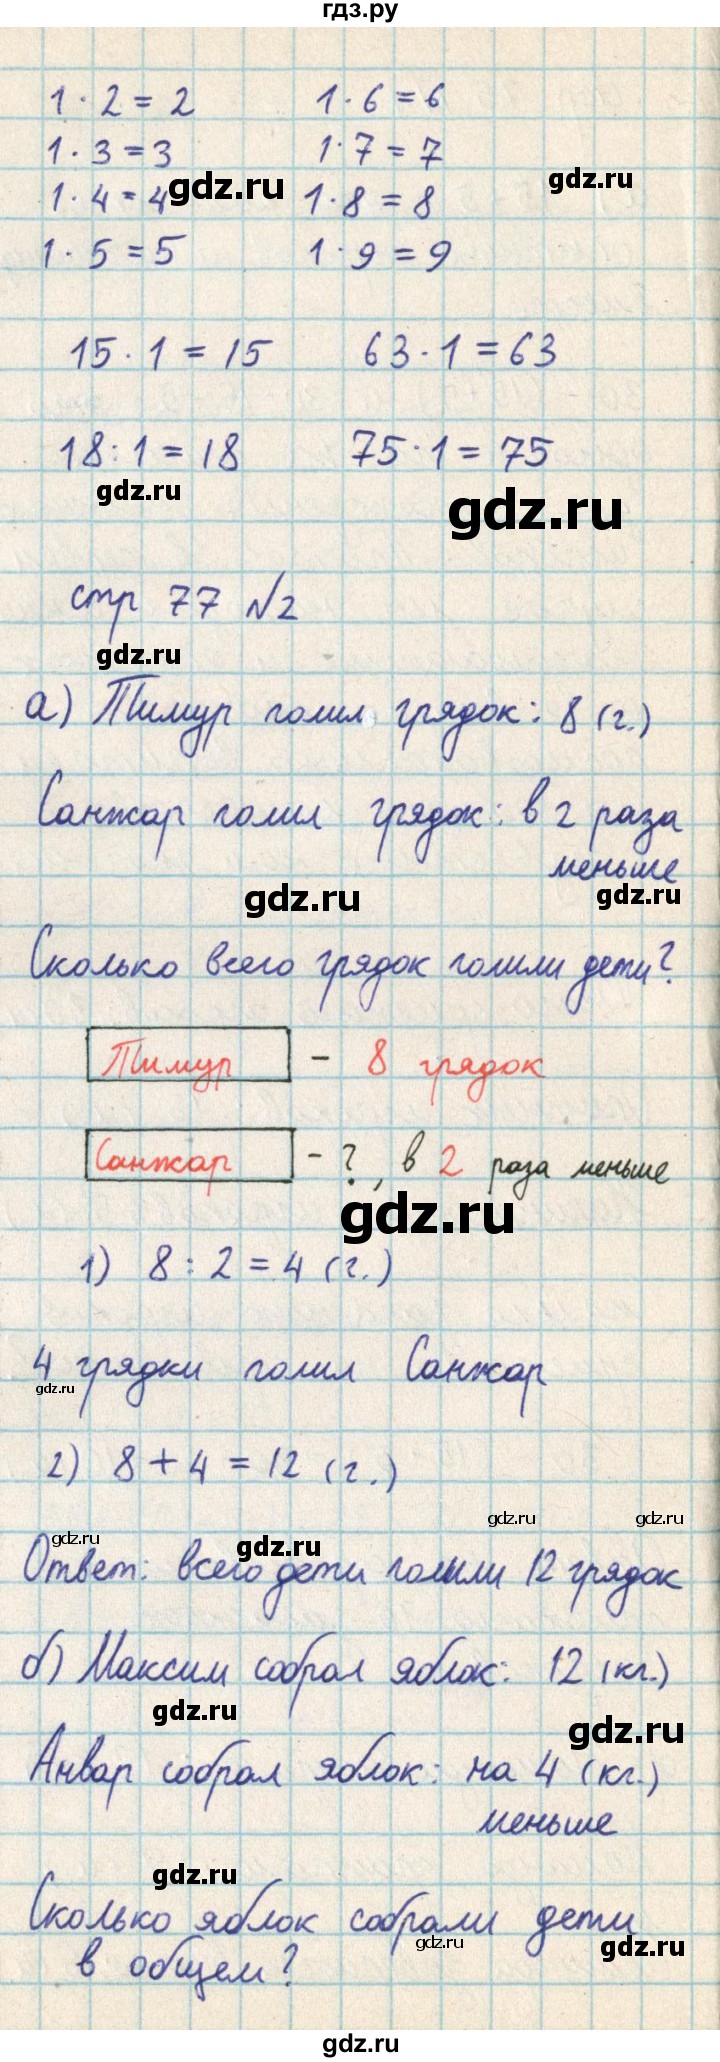 гдз.ру
1 · 2 = 2 1 · 6 = 6
1 · 3 = 3 1 · 7 = 7
1 · 4 = 4 1 · 8 = 8
gdz.ru gdz.ru
1 · 5 = 5 1 · 9 = 9
15 · 1 = 15 63 · 1 = 63
18 : 1 = 18 75 · 1 = 75
gdz.ru gdz.ru
стр 77 №2
gdz.ru
а) Тимур полил грядок: 8 (г.)
Санжар полил грядок: в 2 раза
меньше
gdz.ru gdz.ru
Сколько всего грядок полили дети?
Тимур - 8 грядок
Санжар - ?, в 2 раза меньше
gdz.ru
1) 8 : 2 = 4 (г.)
4 грядки полил Санжар
gdz.ru
2) 8 + 4 = 12 (г.)
gdz.ru gdz.ru
gdz.ru gdz.ru
Ответ: всего дети полили 12 грядок
б) Максим собрал яблок: 12 (кг.)
gdz.ru gdz.ru
Анвар собрал яблок: на 4 (кг.)
меньше
gdz.ru
Сколько яблок собрали дети
gdz.ru gdz.ru
в общем?
gdz.ru